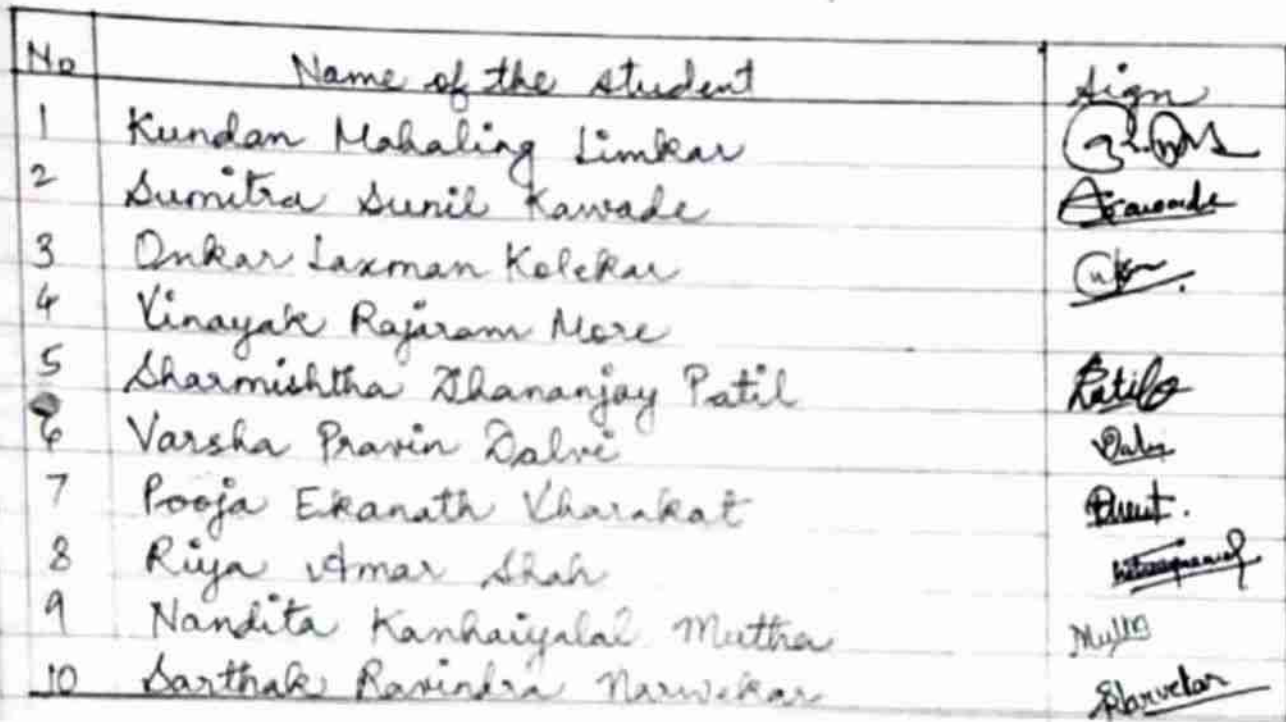 No Name of the student Sign
1 Kundan Mahaling Limkar
2 Sumitra Sunil Kawade Skawade
3 Onkar Laxman Kolekar
4 Vinayak Rajaram More
5 Sharmishtha Dhananjay Patil Patil
6 Varsha Pravin Dalvi
7 Pooja Ekanath Kharakat
8 Riya Amar Shah
9 Nandita Kanhaiyalal Mutha
10 Sarthak Ravindra Narvekar